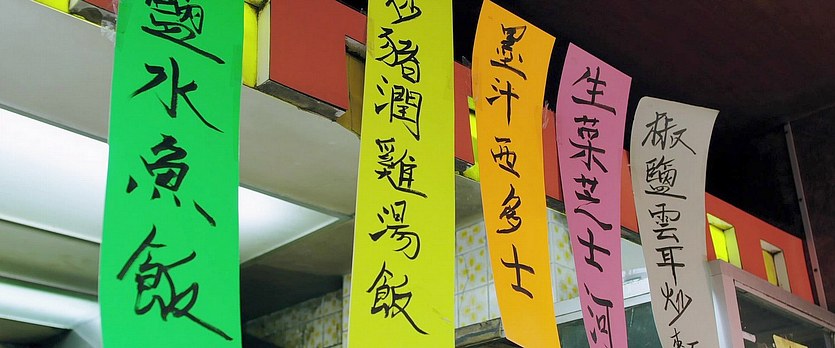 鹽水魚飯
豬潤雞湯飯
墨汁西多士
生菜芝士河
椒鹽雲耳炒